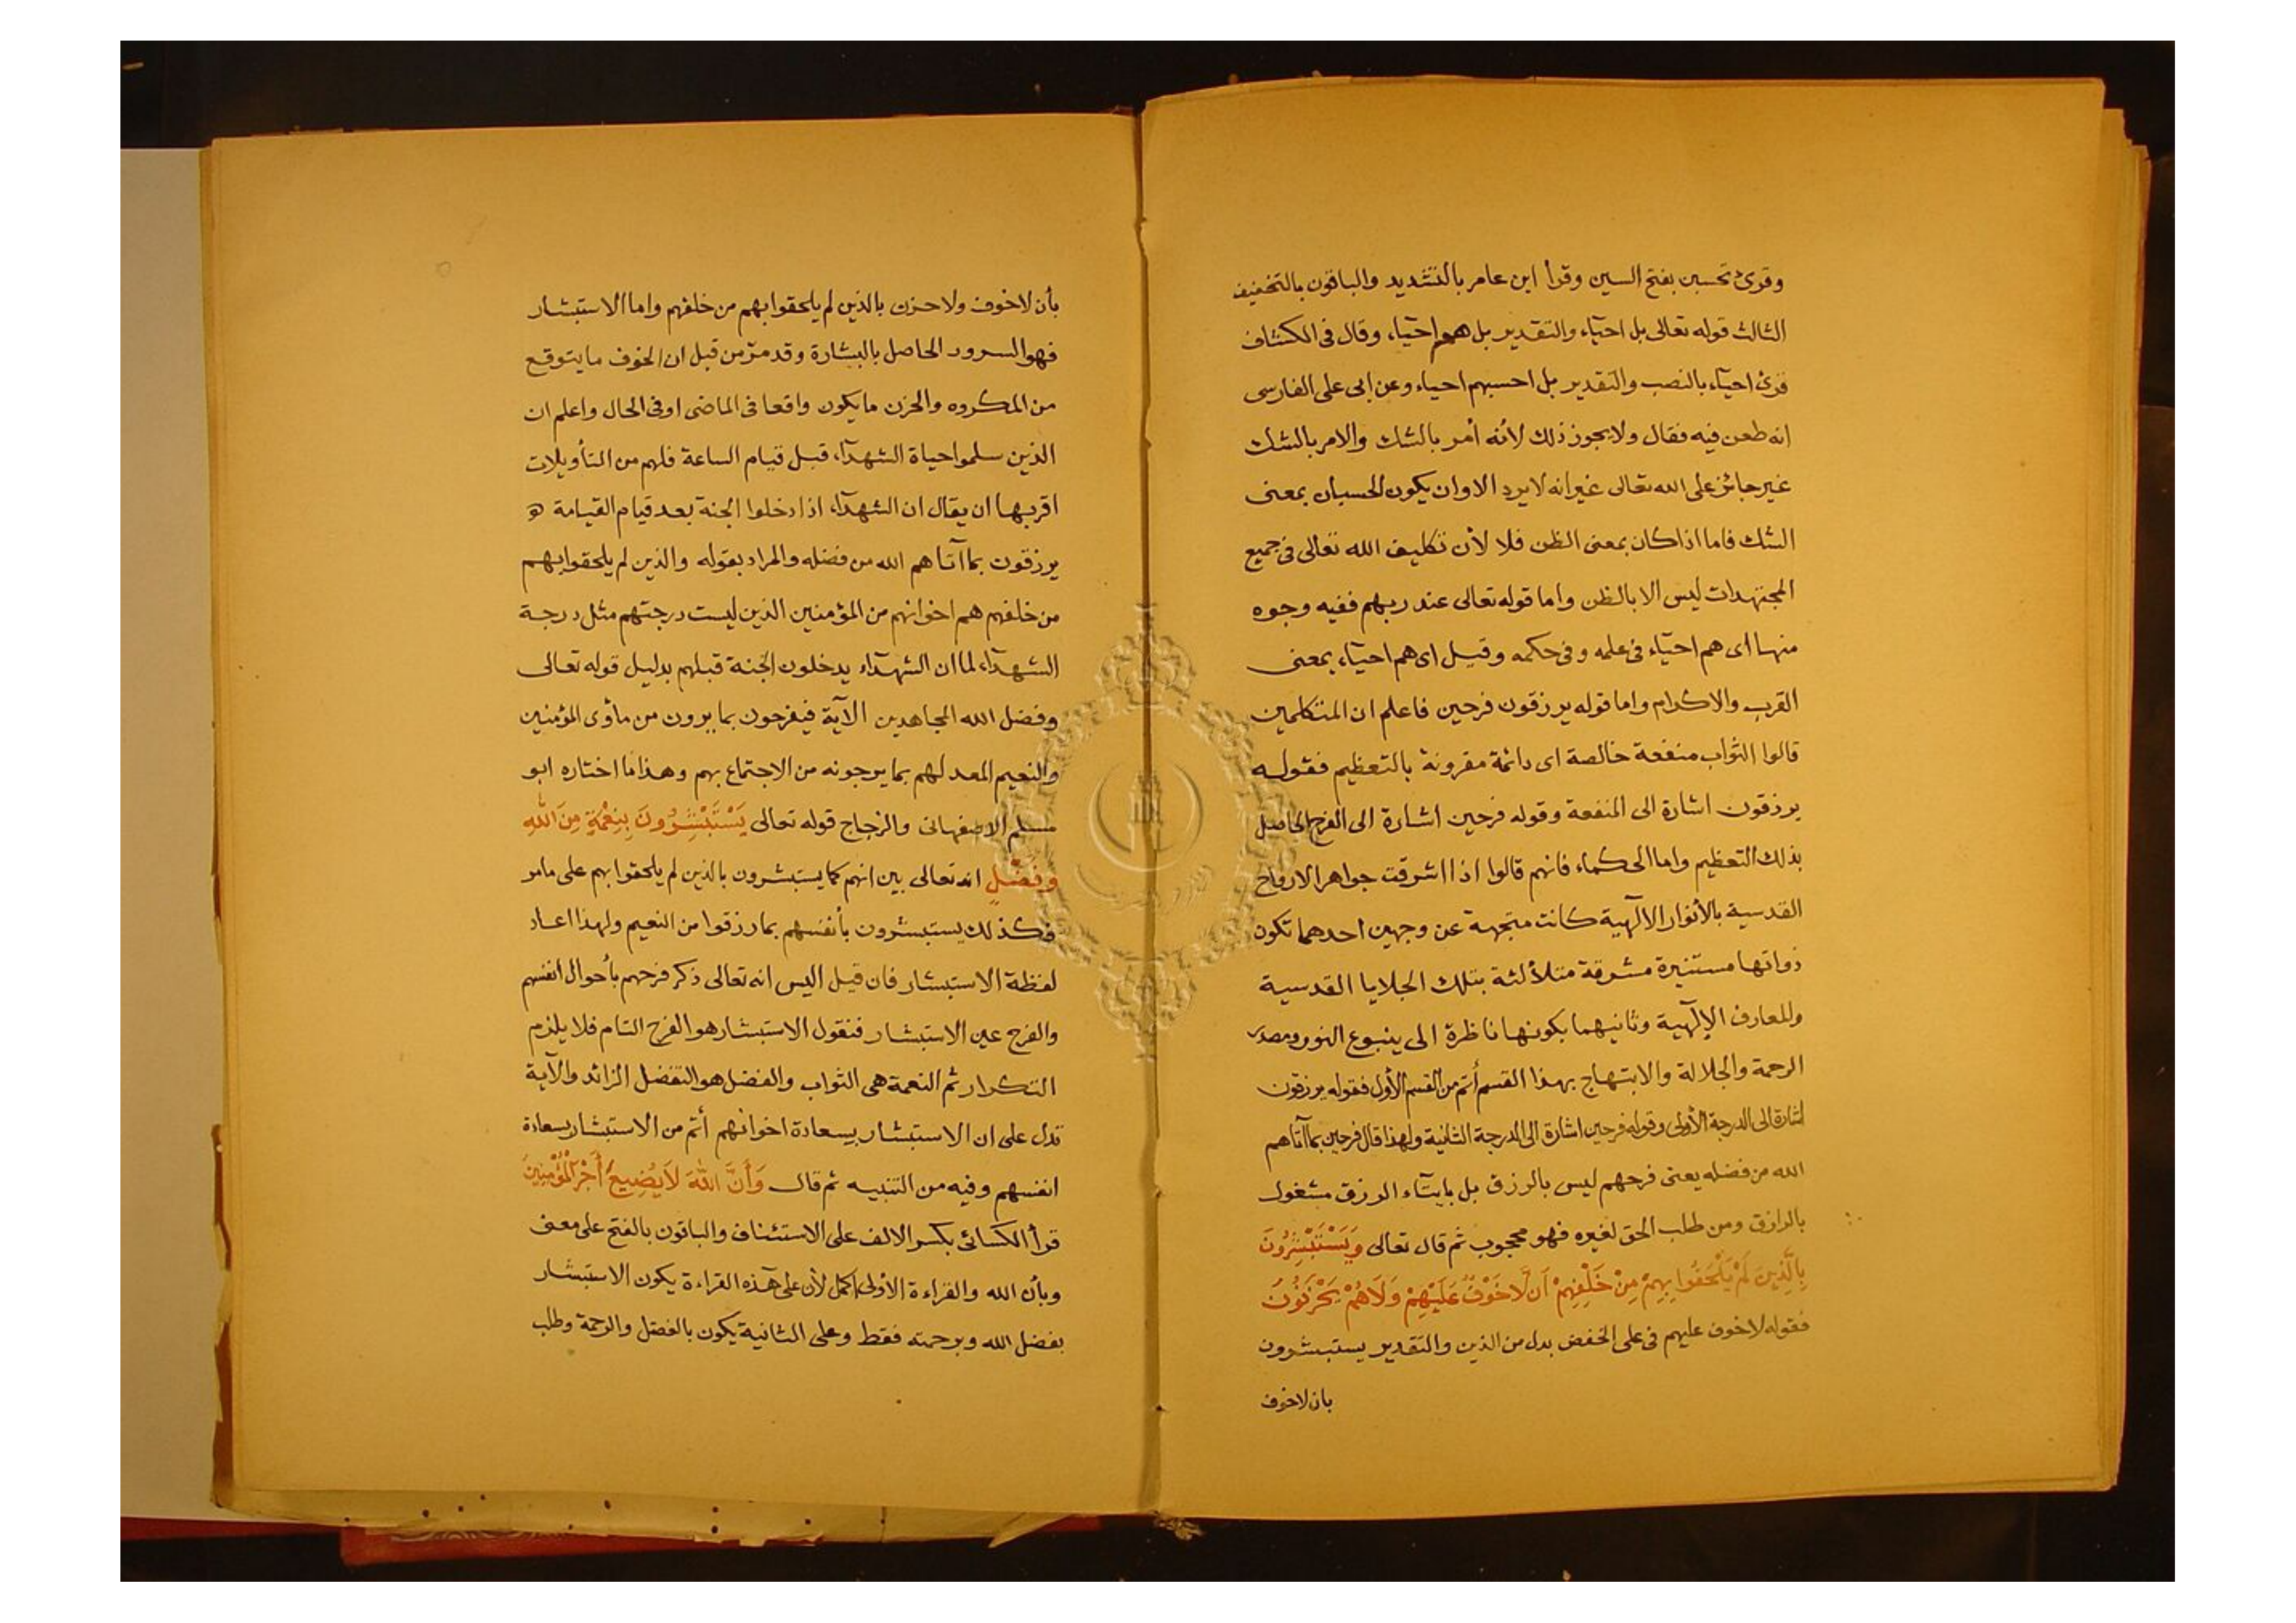 وقرئ تحسبن بفتح السين وقرأ ابن عامر بالتشديد والباقون بالتخفيف
الثالث قوله تعالى بل احيآء والتقدير بل هم احيآء وقال فى الكشاف
قرئ احيآء بالنصب والتقدير بل احسبهم احياء وعن ابى على الفارسى
انه طعن فيه فقال ولا يجوز ذلك لأنه أمر بالشك والامر بالشك
غير جائز على الله تعالى غير انه لا يرد الا وان يكون الحسبان بمعنى
الشك فاما اذا كان بمعنى الظن فلا لأن تكليف الله تعالى فى جميع
المجتهدات ليس الا بالظن واما قوله تعالى عند ربهم ففيه وجوه
منها اى هم احيآء فى علمه وفى حكمه وقيل اى هم احيآء بمعنى
القرب والاكرام واما قوله يرزقون فرحين فاعلم ان المتكلمين
قالوا الثواب منفعة خالصة اى دائمة مقرونة بالتعظيم فقوله
يرزقون اشارة الى المنفعة وقوله فرحين اشارة الى الفرح الحاصل
بذلك التعظيم واما الحكماء فانهم قالوا اذا اشرقت جواهر الارواح
القدسية بالأنوار الالٓهية كانت مبتهجة عن وجهين احدهما تكون
ذواتها مستنيرة مشرقة متلألئة بتلك الجلايا القدسية
وللعارف الإلٓهية وثانيهما بكونها ناظرة الى ينبوع النور ومصدر
الرحمة والجلالة والابتهاج بهذا القسم أتم من القسم الأول فقوله يرزقون
اشارة الى الدرجة الأولى وقوله فرحين اشارة الى الدرجة الثانية ولهذا قال فرحين بما آتاهم
الله من فضله يعنى فرحهم ليس بالرزق بل بايتآء الرزق مشغول
بالرازق ومن طلب الحق لغيره فهو محجوب ثم قال تعالى وَيَسْتَبْشِرُونَ
بِالَّذِينَ لَمْ يَلْحَقُوا بِهِمْ مِنْ خَلْفِهِمْ اَنْ لَّا خَوْفٌ عَلَيْهِمْ وَلَا هُمْ يَحْزَنُونَ
فقوله لا خوف عليهم فى على الخفض بدل من الذين والتقدير يستبشرون
بان لا خوف
بأن لا خوف ولا حزن بالذين لم يلحقوا بهم من خلفهم واما الاستبشار
فهو السرور الحاصل بالبشارة وقد مرّ من قبل ان الخوف ما يتوقع
من المكروه والحزن ما يكون واقعا فى الماضى او فى الحال واعلم ان
الذين سلموا حياة الشهدآء قبل قيام الساعة فلهم من التأويلات
اقربها ان يقال ان الشهدآء اذا دخلوا الجنة بعد قيام القيامة
يرزقون بما آتاهم الله من فضله والمراد بقوله والذين لم يلحقوا بهم
من خلفهم هم اخوانهم من المؤمنين الذين ليست درجتهم مثل درجة
الشهدآء لما ان الشهدآء يدخلون الجنة قبلهم بدليل قوله تعالى
وفضل الله المجاهدين الآية فيفرحون بما يرون من مأوى المؤمنين
والنعيم المعد لهم بما يرجونه من الاجتماع بهم وهذا ما اختاره ابو
مسلم الاصفهانى والزجاج قوله تعالى يَسْتَبْشِرُونَ بِنِعْمَةٍ مِنَ اللهِ
وَفَضْلٍ انه تعالى بين انهم كما يستبشرون بالذين لم يلحقوا بهم على مامر
فكذلك يستبشرون بأنفسهم بما رزقوا من النعيم ولهذا اعاد
لفظة الاستبشار فان قيل اليس انه تعالى ذكر فرحهم بأحوال انفسهم
والفرح عين الاستبشار فنقول الاستبشار هو الفرح التام فلا يلزم
التكرار ثم النعمة هى الثواب والفضل هو التفضل الزائد والآية
تدل على ان الاستبشار بسعادة اخوانهم أتم من الاستبشار بسعادة
انفسهم وفيه من التنبيه ثم قال وَأَنَّ اللهَ لَا يُضِيعُ أَجْرَ الْمُؤْمِنِينَ
قرأ الكسائى بكسر الالف على الاستئناف والباقون بالفتح على معنى
وبأن الله والقراءة الأولى اكمل لأن على هذه القراءة يكون الاستبشار
بفضل الله وبرحمته فقط وعلى الثانية يكون بالفضل والرحمة وطلب